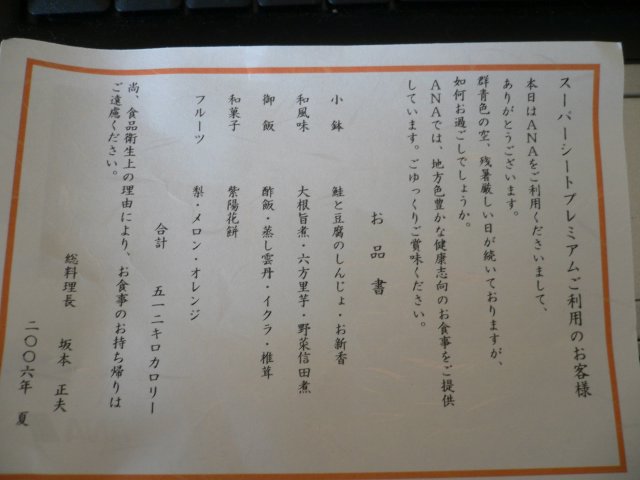 スーパーシートプレミアムご利用のお客様
本日はＡＮＡをご利用くださいまして、
ありがとうございます。
群青色の空、残暑厳しい日が続いておりますが、
如何お過ごしでしょうか。
ＡＮＡでは、地方色豊かな健康志向のお食事をご提供
しています。ごゆっくりご賞味ください。
お品書
小鉢　鮭と豆腐のしんじょ・お新香
和風味　大根旨煮・六方里芋・野菜信田煮
御飯　酢飯・蒸し雲丹・イクラ・椎茸
和菓子　紫陽花餅
フルーツ　梨・メロン・オレンジ
合計　五一二キロカロリー
尚、食品衛生上の理由により、お食事のお持ち帰りは
ご遠慮ください。
総料理長　坂本　正夫
二〇〇六年　夏